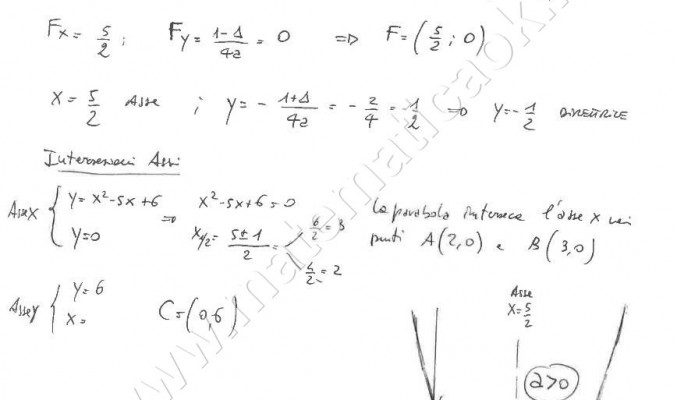 Fx = 5/2 ; Fy = 1-Δ/4a = 0 ⇒ F = (5/2 ; 0)
x = 5/2 Asse ; y = - 1+Δ/4a = - 2/4 = 1/2 ⇒ y = - 1/2 DIRETTRICE
Intersezioni Assi
Asse X { y = x²-5x+6 ⇒ x²-5x+6=0
y=0 x1/2 = 5±1/2 = 6/2 = 3
4/2 = 2
La parabola interseca l'asse x nei
punti A(2,0) e B(3,0)
Asse y { y = 6
x = C = (0,6)
Asse
x = 5/2
a>0
www.matematicaok.